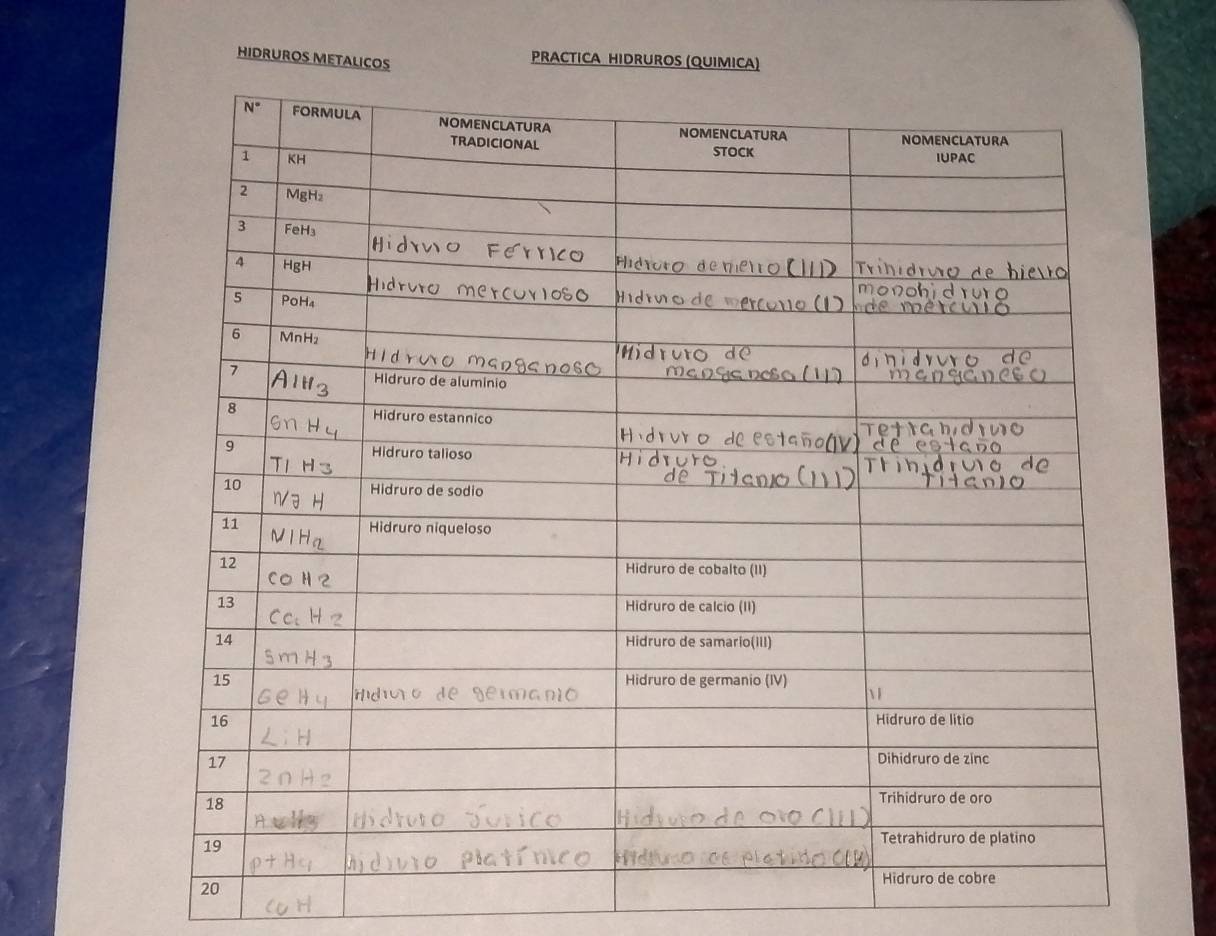 HIDRUROS METALICOS
PRACTICA HIDRUROS (QUIMICA)
N° FORMULA NOMENCLATURA TRADICIONAL NOMENCLATURA STOCK NOMENCLATURA IUPAC
1 KH
2 MgH₂
3 FeH₃ Hidruro Férrico Hidruro de hierro (III) Trihidruro de hierro
4 HgH Hidruro mercurioso Hidruro de mercurio (I) monohidruro de mercurio
5 PoH₄
6 MnH₂ Hidruro manganoso Hidruro de manganeso (II) dihidruro de manganeso
7 AlH3 Hidruro de aluminio
8 SnH4 Hidruro estannico Hidruro de estaño (IV) Tetrahidruro de estaño
9 TiH3 Hidruro talioso Hidruro de Titanio (III) Trihidruro de Titanio
10 NaH Hidruro de sodio
11 NiH2 Hidruro niqueloso
12 COH2 Hidruro de cobalto (II)
13 CaH2 Hidruro de calcio (II)
14 SmH3 Hidruro de samario(III)
15 GeH4 Hidruro de germanio Hidruro de germanio (IV) 11
16 LiH Hidruro de litio
17 ZnH2 Dihidruro de zinc
18 AuH3 Hidruro áurico Hidruro de oro (III) Trihidruro de oro
19 PtH4 hidruro platínico Hidruro de platino (IV) Tetrahidruro de platino
20 CuH Hidruro de cobre